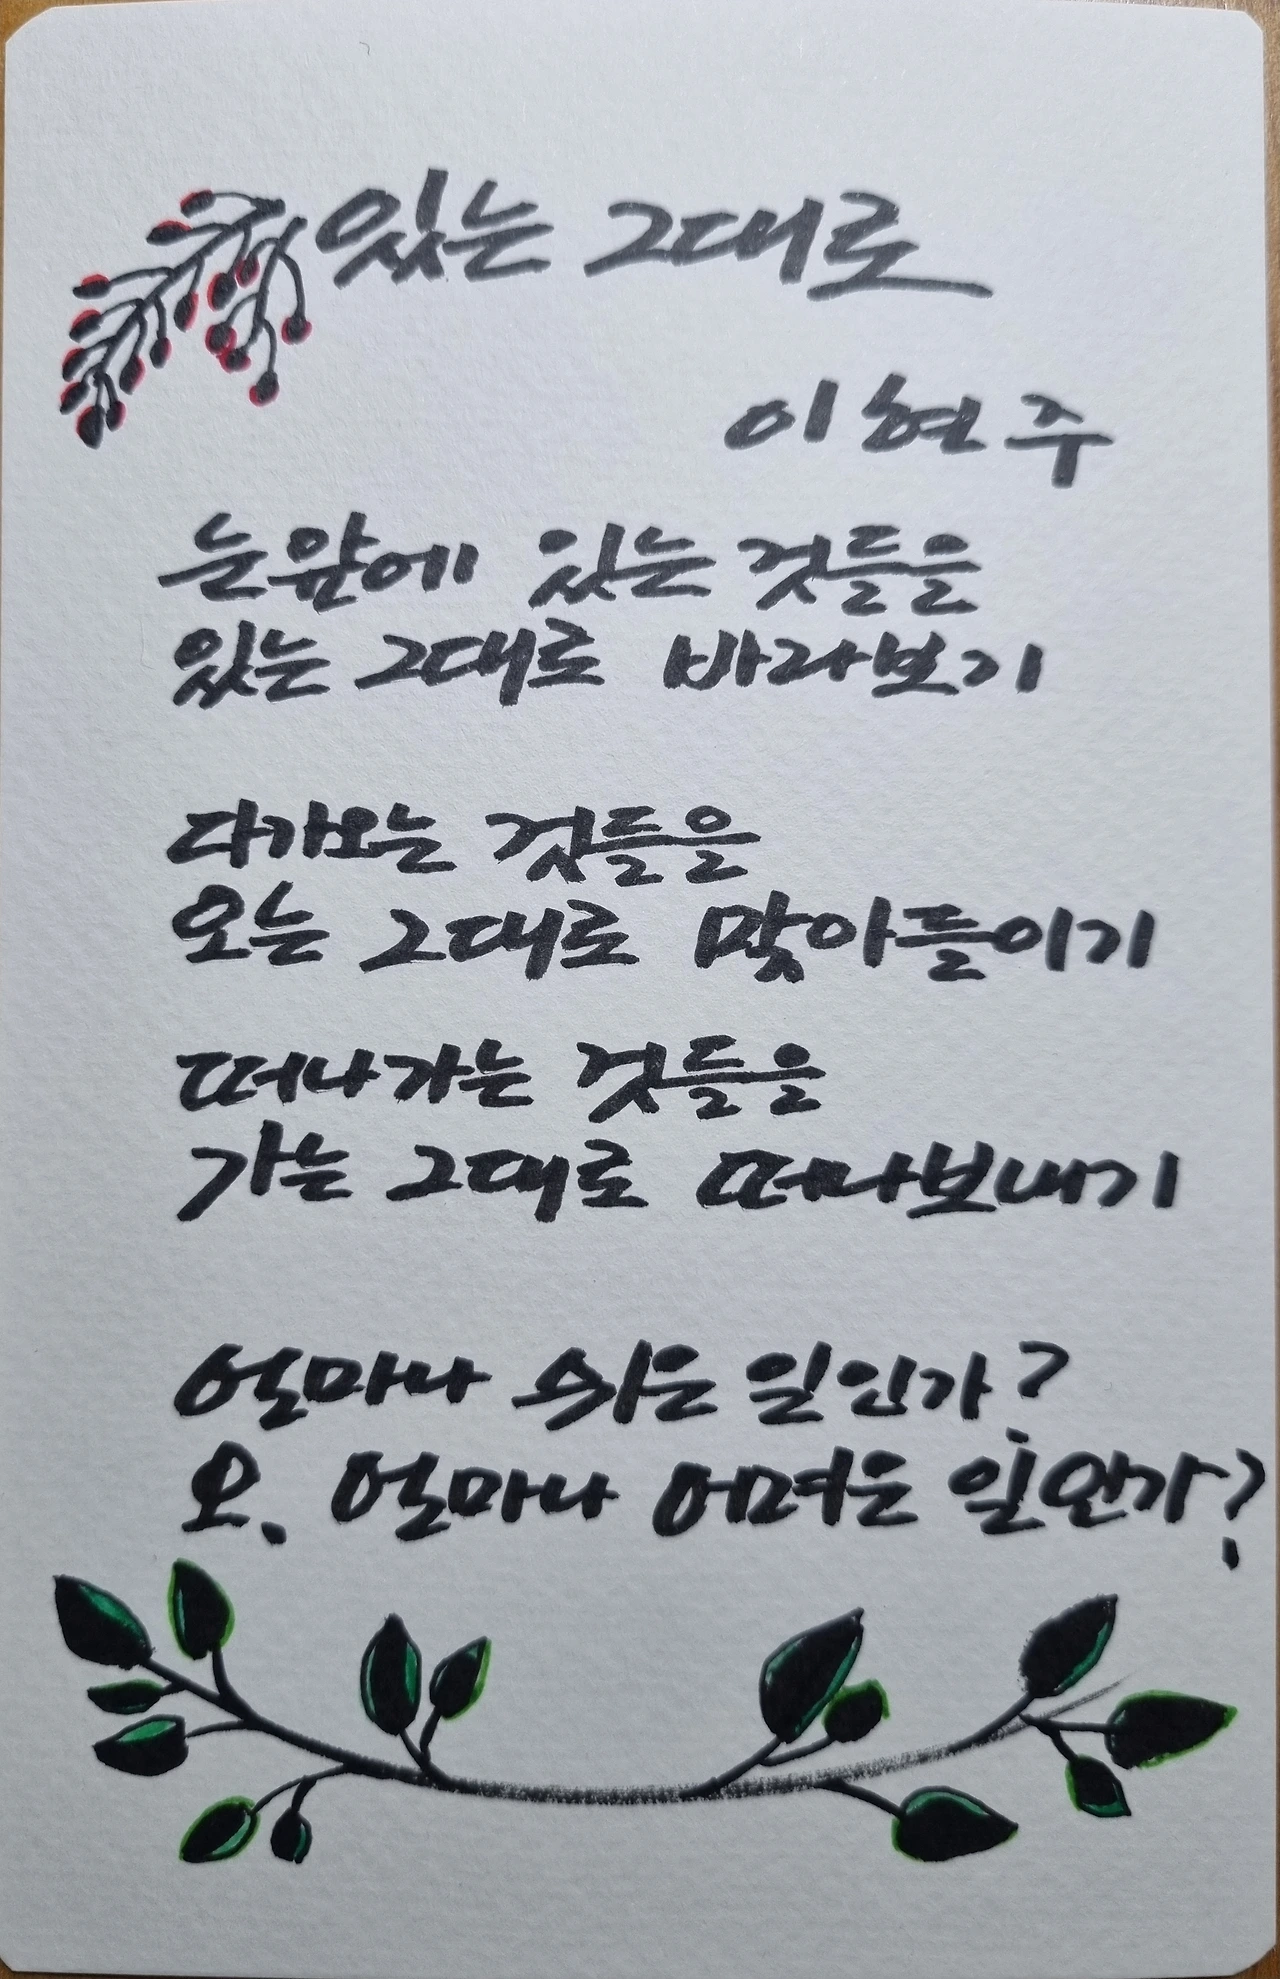 있는 그대로
이현주
눈앞에 있는 것들을
있는 그대로 바라보기
다가오는 것들을
오는 그대로 맞아들이기
떠나가는 것들을
가는 그대로 떠나보내기
얼마나 쉬운 일인가?
오. 얼마나 어려운 일인가?